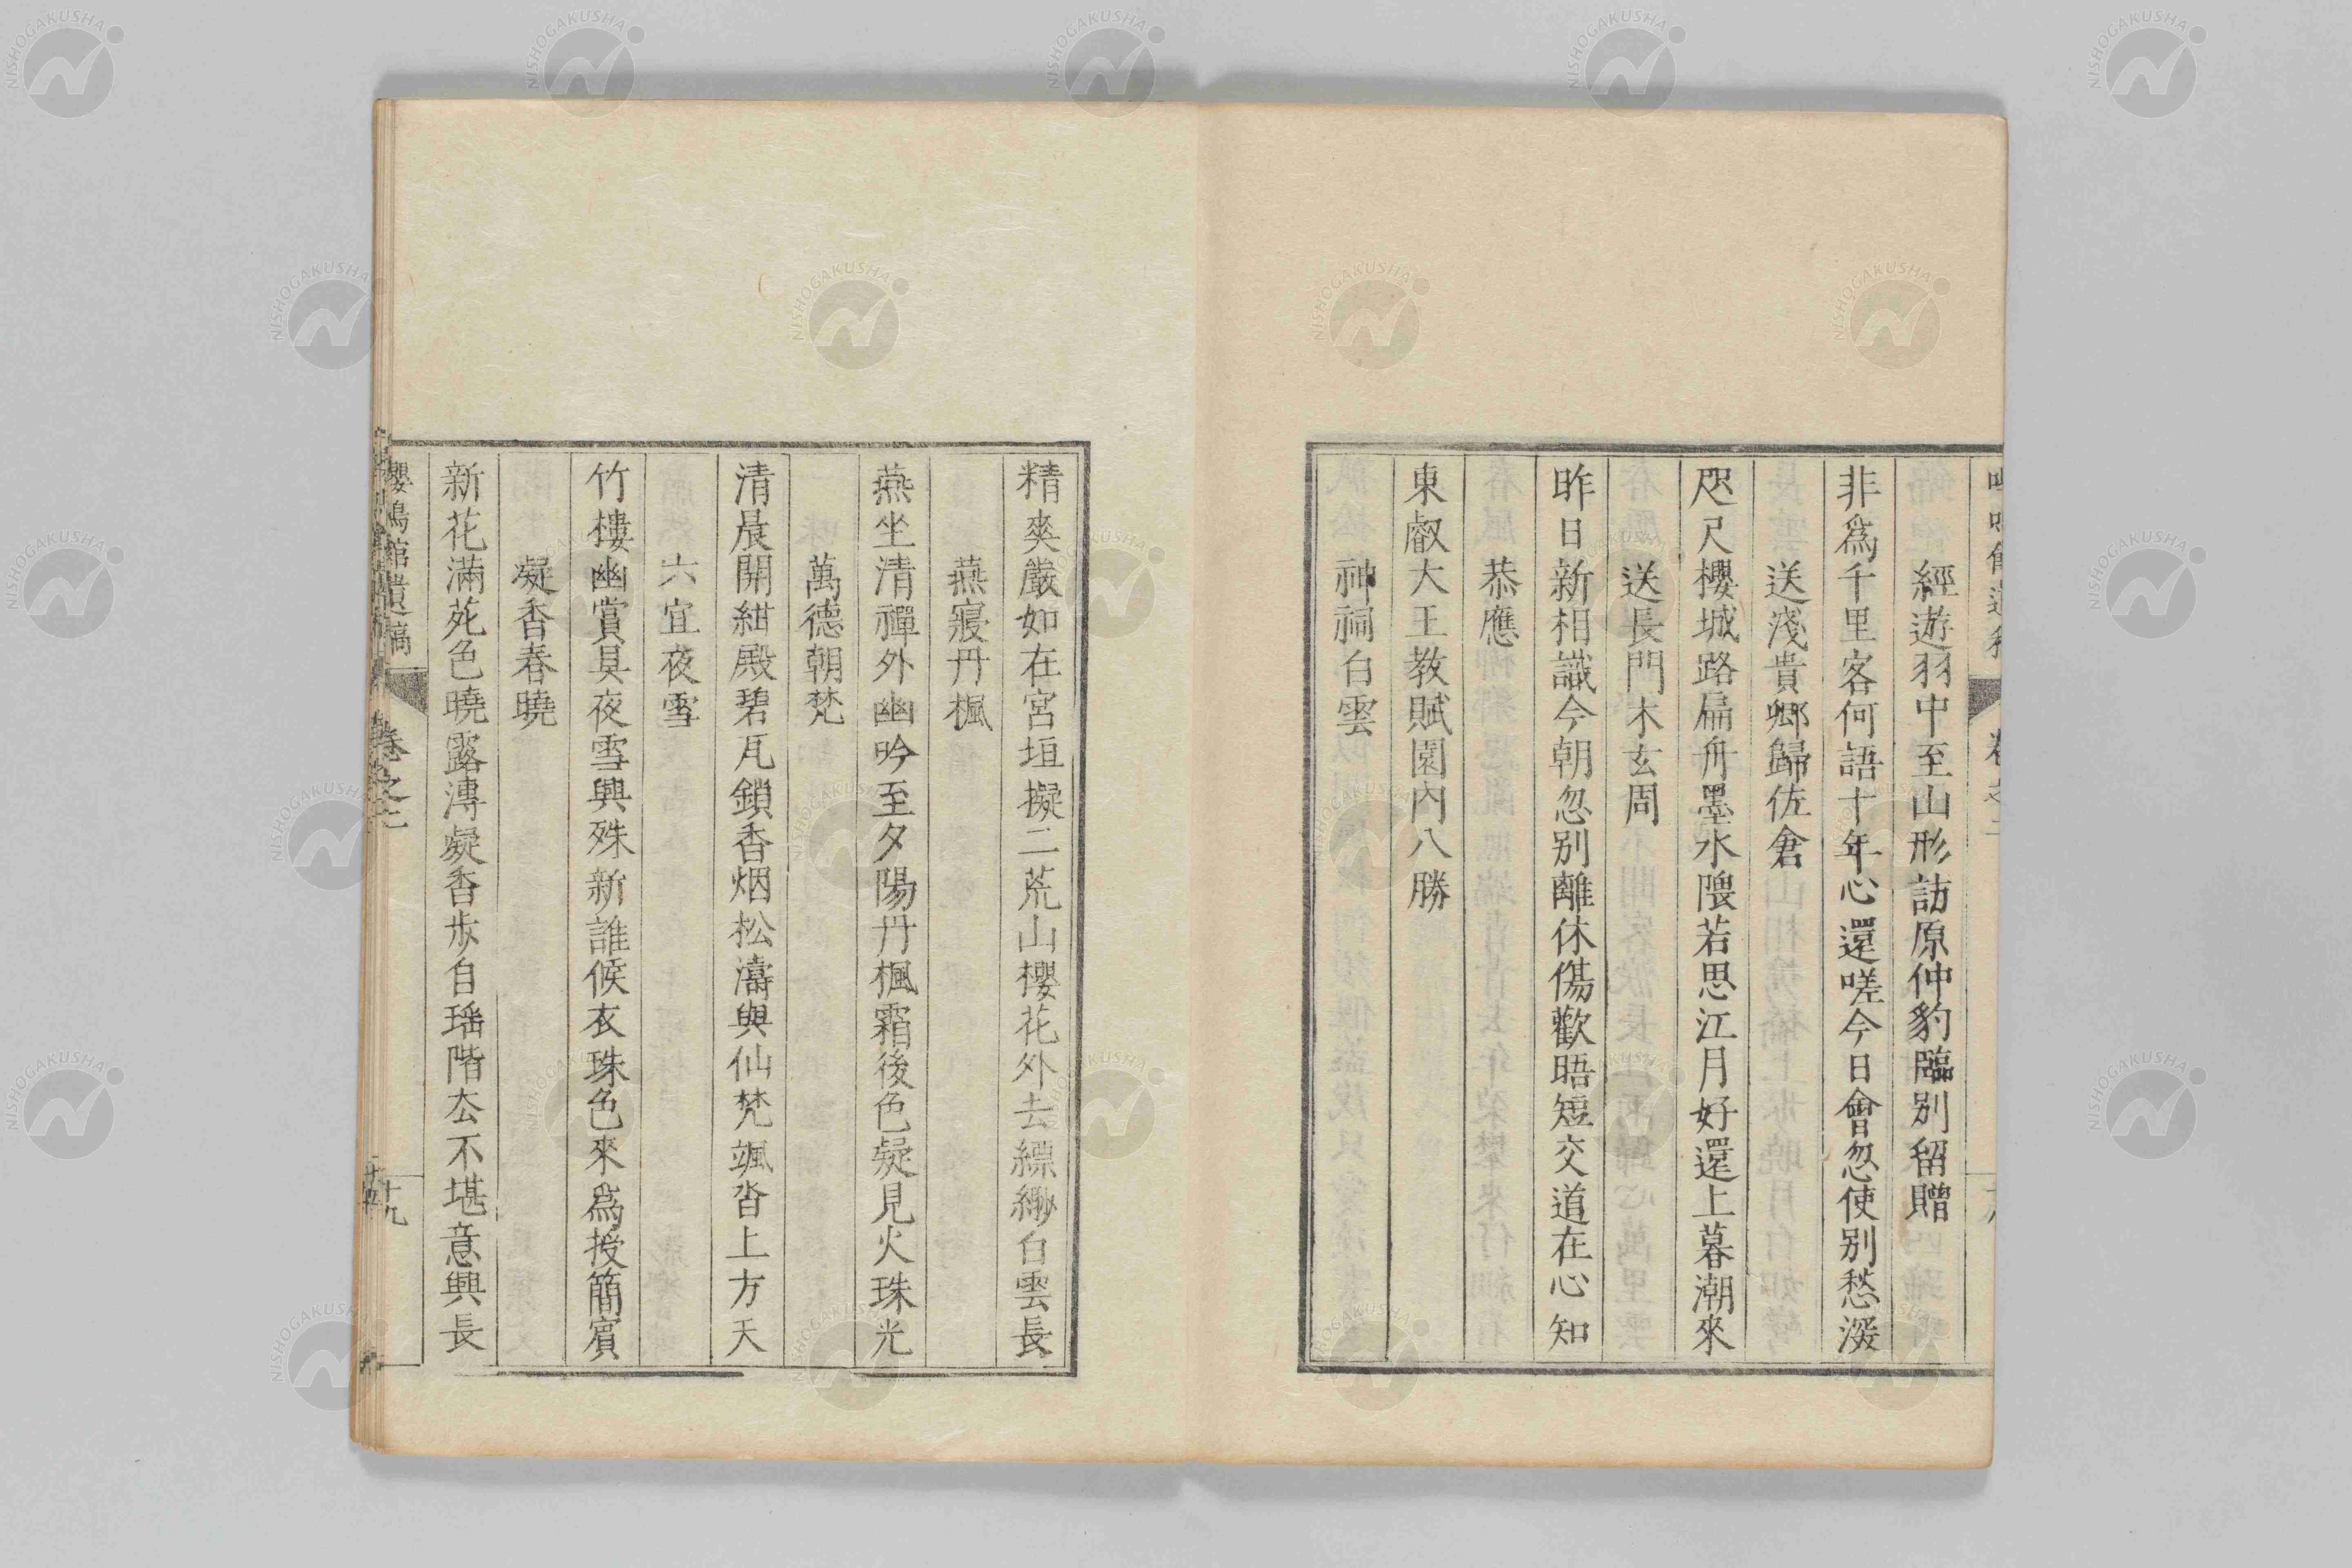 經遊羽中至山形訪原仲豹臨別留贈
非爲千里客何語十年心還嗟今日會忽使別愁深
送淺貴卿歸佐倉
咫尺櫻城路扁舟墨水隈若思江月好還上暮潮來
送長門木玄周
昨日新相識今朝忽別離休傷歡晤短交道在心知
恭應
東叡大王教賦園內八勝
神祠白雲
精爽嚴如在宮垣擬二荒山櫻花外去縹緲白雲長
燕寢丹楓
燕坐清禪外幽吟至夕陽丹楓霜後色疑見火珠光
萬德朝梵
清晨開紺殿碧瓦鎖香烟松濤與仙梵颯沓上方天
六宜夜雪
竹樓幽賞具夜雪興殊新誰候衣珠色來爲授簡賓
凝香春曉
新花滿苑色曉露漙凝香步自瑤階厺不堪意興長
櫻鳴館遺稿
卷之二
十九